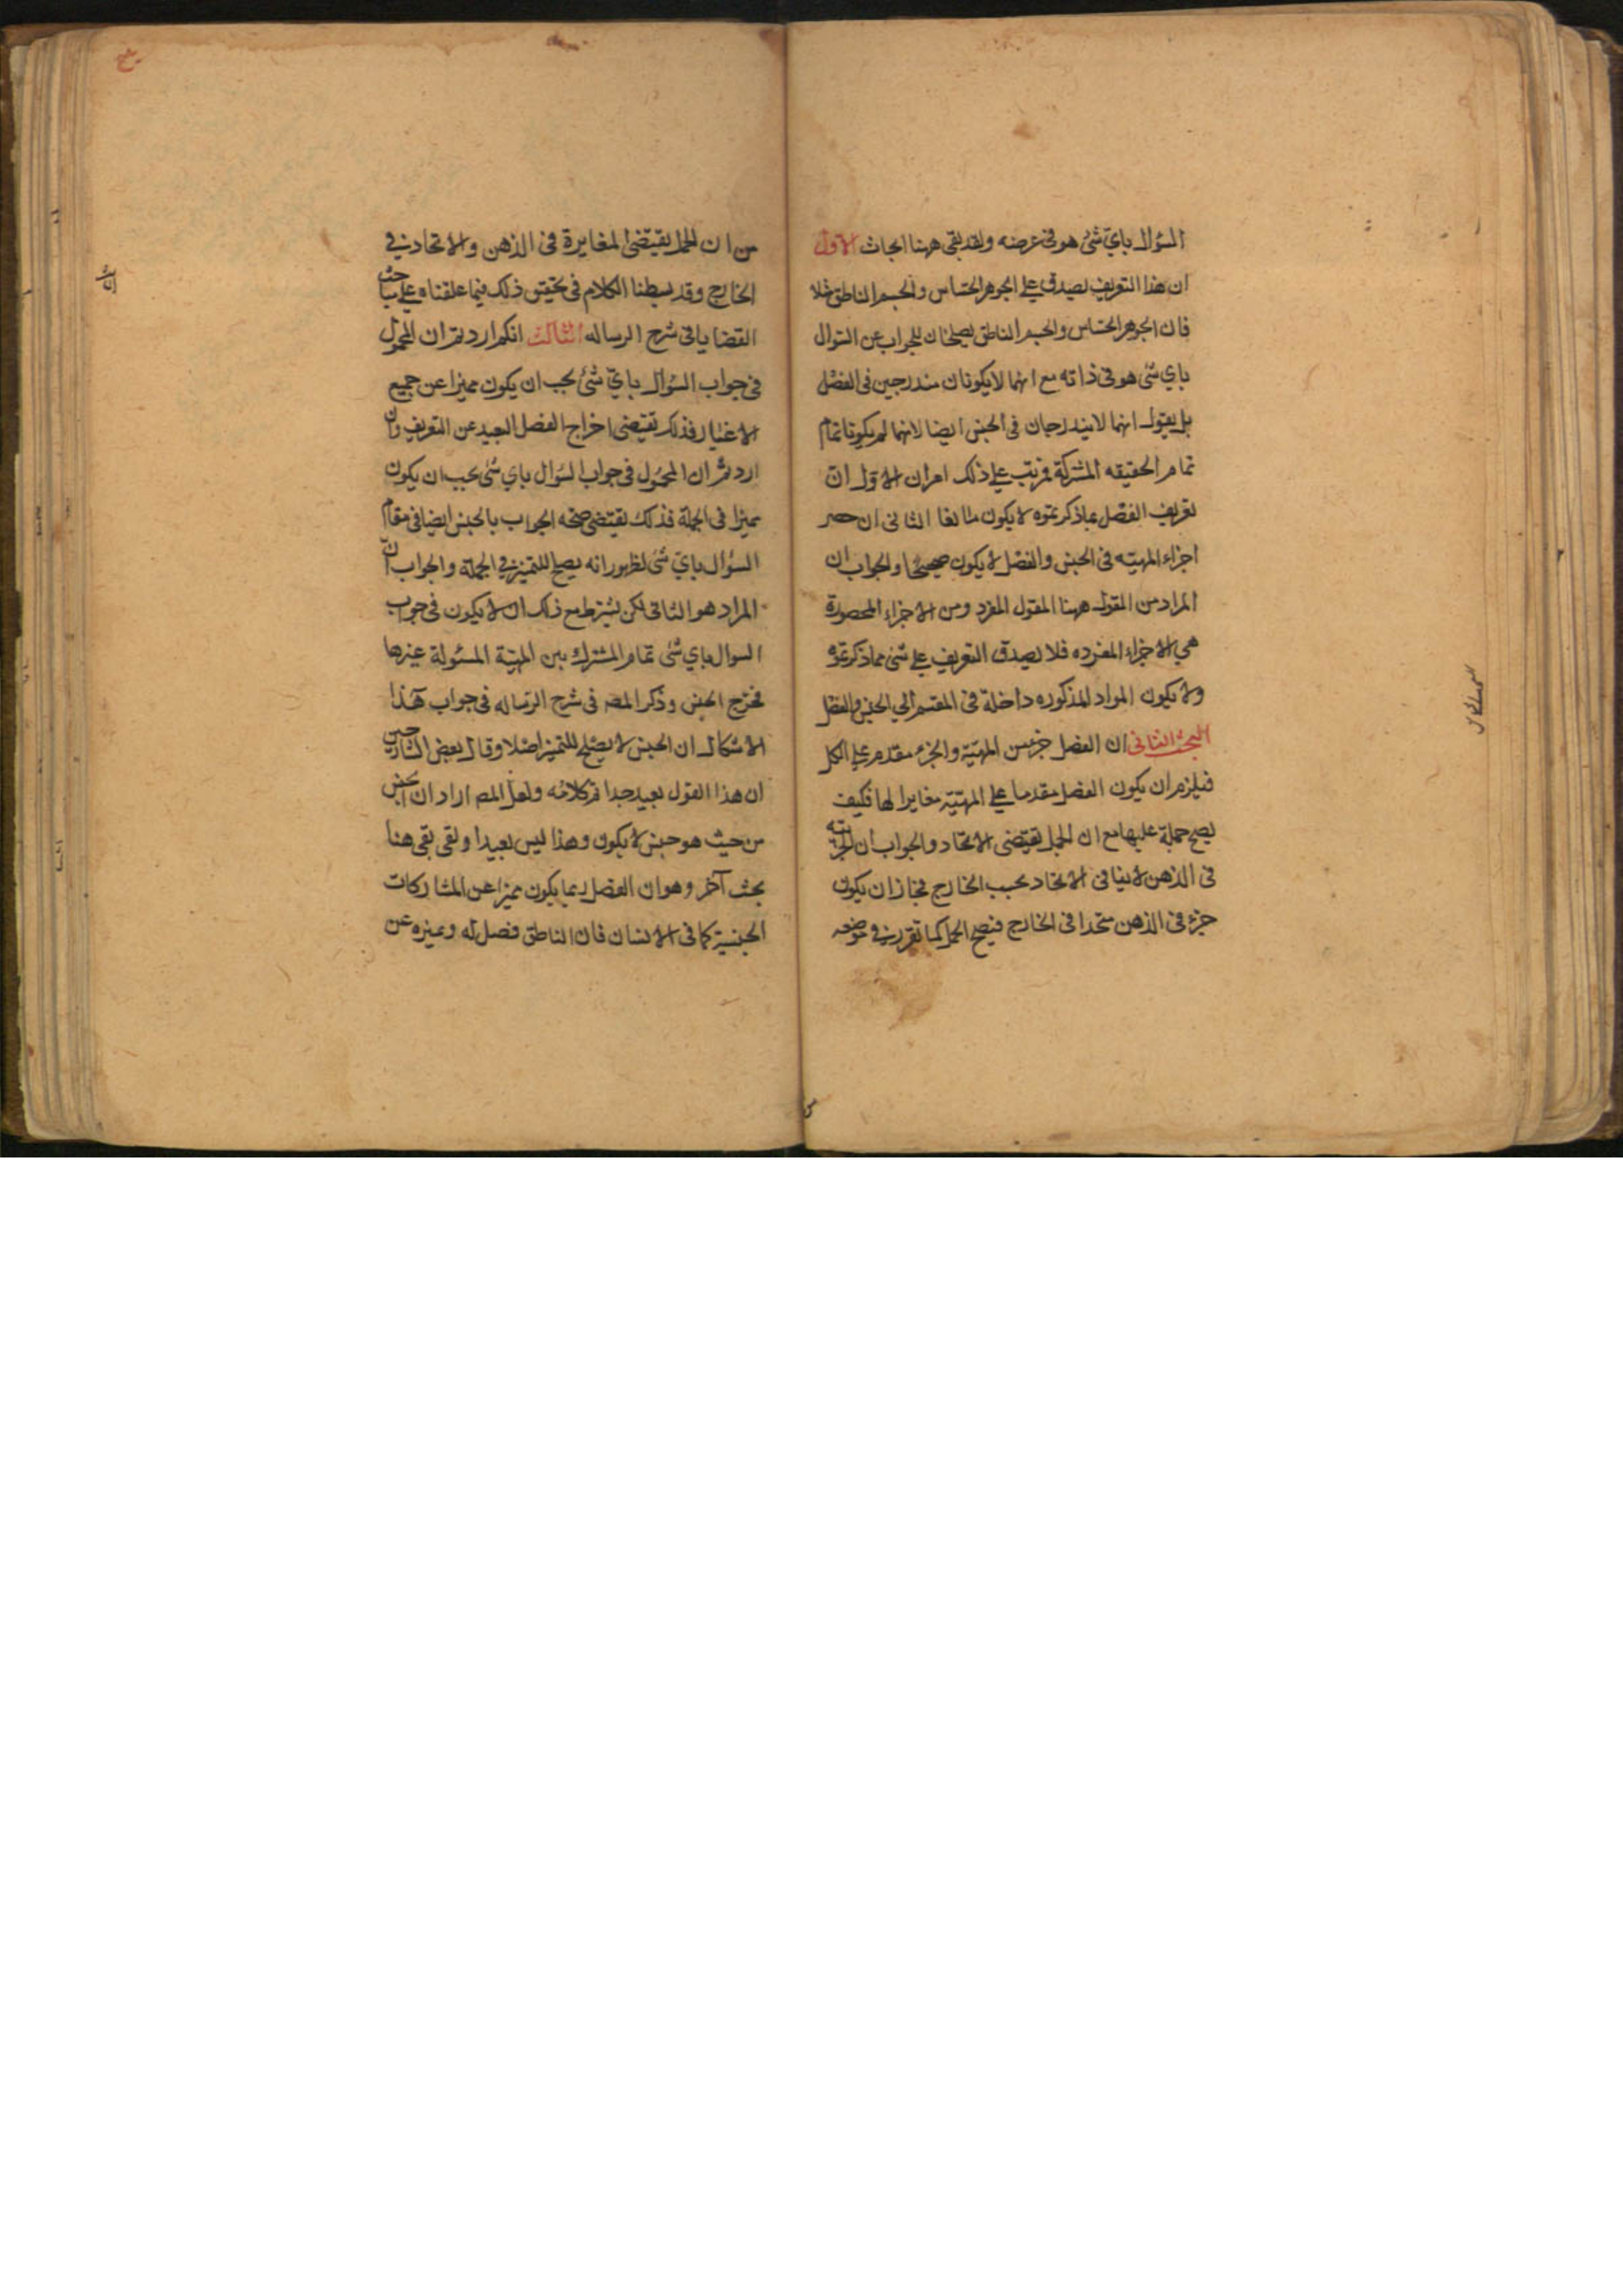 السؤال باي شئ هو في عرضه ولقد بقي ههنا ابحاث الاول
ان هذا التعريف يصدق علي الجوهر الحساس والجسم الناطق مثلا
فان الجوهر الحساس والجسم الناطق يصلحان للجواب عن السؤال
باي شئ هو في ذاته مع انهما لا يكونان مندرجين في الفصل
بل يقول انهما لا يندرجان في الجنس ايضا لانهما لم يكونا تمام
تمام الحقيقه المشتركة فرتب علي ذلك امران الاول ان
تعريف الفصل بما ذكرتموه لا يكون مانعا الثاني ان حصر
اجزاء المهيّه في الجنس والفصل لا يكون صحيحا والجواب ان
المراد من المقول ههنا المقول المفرد ومن الاجزاء المحصورة
هي الاجزاء المفرده فلا يصدق التعريف علي شئ مما ذكرتموه
ولا يكون المواد المذكوره داخلة في المقسم الي الجنس والفصل
البحث الثاني ان الفصل جزء من المهيّة والجزء مقدم علي الكل
فيلزم ان يكون الفصل مقدما علي المهيّة مغايرا لها فكيف
يصح حملة عليها مع ان الحمل يقتضي الاتحاد والجواب ان الجزئيه
في الذهن لا ينافي الاتحاد بحسب الخارج فجاز ان يكون
جزء في الذهن متحدا في الخارج فيصح الحمل كما تقرر في موضعه
من ان الحمل يقتضي المغايرة في الذهن والاتحاد في
الخارج وقد بسطنا الكلام في تحقيق ذلك فيما علقناه علي مباحث
القضايا في شرح الرساله الثالث انكم اردتم ان المحمول
في جواب السؤال باي شئ يجب ان يكون مميزا عن جميع
الاغيار فذلك يقتضي اخراج الفصل البعيد عن التعريف وان
اردتم ان المحمول في جواب السؤال باي شئ يجب ان يكون
مميزا في الجملة فذلك يقتضي صحه الجواب بالجنس ايضا في مقام
السؤال باي شئ لظهور انه يصح للتميز في الجملة والجواب ان
المراد هو الثاني لكن يشترط مع ذلك ان لا يكون في جواب
السوال باي شئ تمام المشترك بين المهيّة المسئولة غيرها
فخرج الجنس وذكر المص في شرح الرساله في جواب هذا
الاشكال ان الجنس لا يصلح للتميز اصلا وقال بعض الشارحين
ان هذا القول بعيد جدا من كلامه ولعل المص اراد ان الجنس
من حيث هو جنس لا يكون وهذا ليس بعيدا ولقي بقي هنا
بحث آخر وهو ان الفصل ربما يكون مميزا عن المشاركات
الجنسية كما في الانسان فان الناطق فصل له ويميزه عن